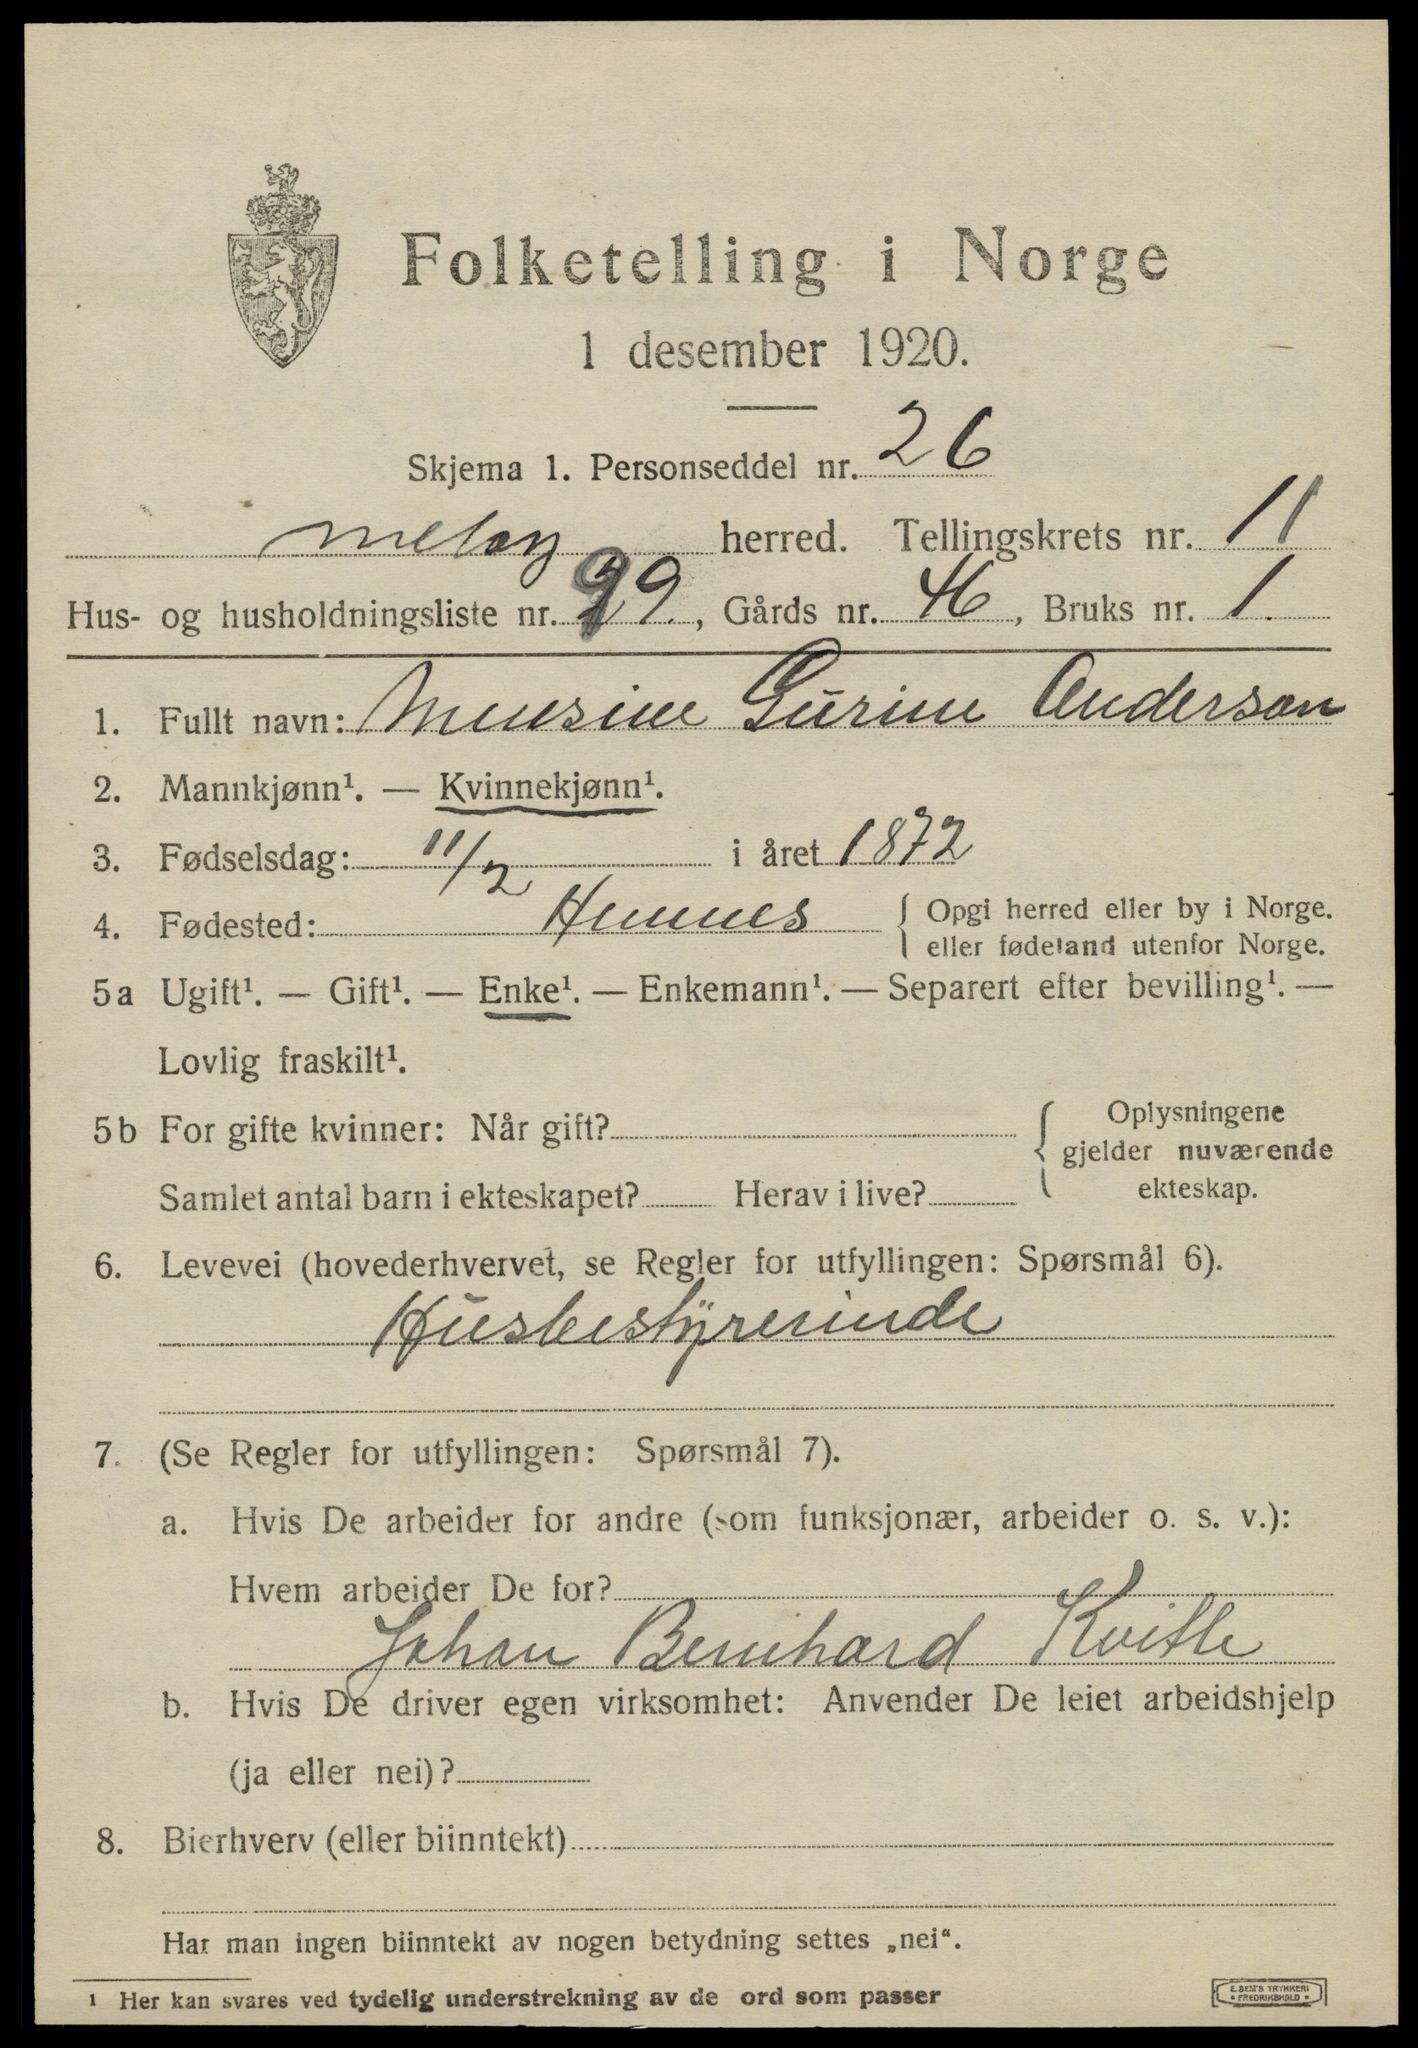 Folketelling i Norge
1 desember 1920.
Skjema 1. Personseddel nr. 26
Meløy herred. Tellingskrets nr. 11
Hus- og husholdningsliste nr. 99., Gårds nr. 46, Bruks nr. 1.
1. Fullt navn: Gurine Anderson
2. Mannkjønn¹. — Kvinnekjønn¹.
3. Fødselsdag: 11/2 i året 1872
4. Fødested: Hemnes { Opgi herred eller by i Norge.
eller fødeland utenfor Norge.
5a Ugift¹. — Gift¹. — Enke¹. — Enkemann¹. — Separert efter bevilling¹. —
Lovlig fraskilt¹.
5b For gifte kvinner: Når gift? { Oplysningene
gjelder nuværende
Samlet antal barn i ekteskapet? Herav i live? ekteskap.
6. Levevei (hovederhvervet, se Regler for utfyllingen: Spørsmål 6).
Husbestyrerinde
7. (Se Regler for utfyllingen: Spørsmål 7).
a. Hvis De arbeider for andre (som funksjonær, arbeider o. s. v.):
Hvem arbeider De for?
Johan Bernhard
b. Hvis De driver egen virksomhet: Anvender De leiet arbeidshjelp
(ja eller nei)?
8. Bierhverv (eller biinntekt)
Har man ingen biinntekt av nogen betydning settes „nei".
¹ Her kan svares ved tydelig understrekning av de ord som passer
E. SEM'S TRYKKERI
* FREDRIKSHALD *